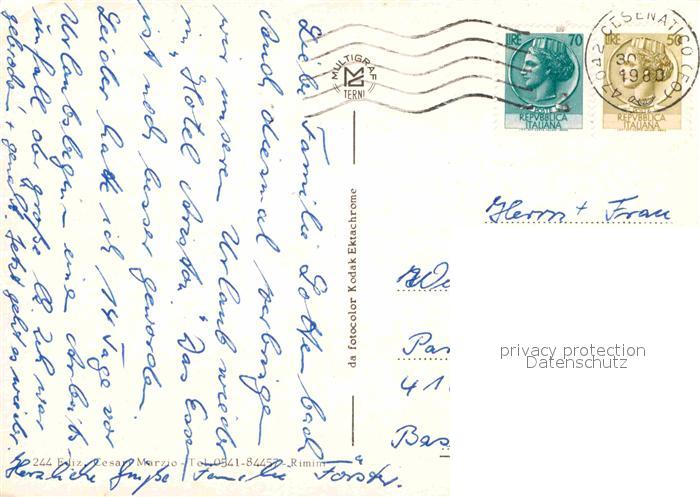 Liebe Familie Lottenbach,
Auch diesmal verbringen
wir unseren Urlaub wieder
im "Hotel Ariston". Das Essen
ist noch besser geworden.
Leider hatte ich 14 Tage vor
Urlaubsbeginn eine Arbeits,
unfall die große Zeh war
gebrochen + genäht. Jetzt geht es weiter.
Herzliche Grüße Familie Förster.
244 Ediz. Cesare Marzio - Tel. 0541-84457 - Rimini
da fotocolor Kodak Ektachrome
MULTIGRAF
TERNI
LIRE 70
POSTE
REPVBBLICA
ITALIANA
LIRE 50
POSTE
REPVBBLICA
ITALIANA
47042 CESENATICO (FO)
30
1980
Herrn + Frau
Pas
41
Bas
privacy protection
Datenschutz